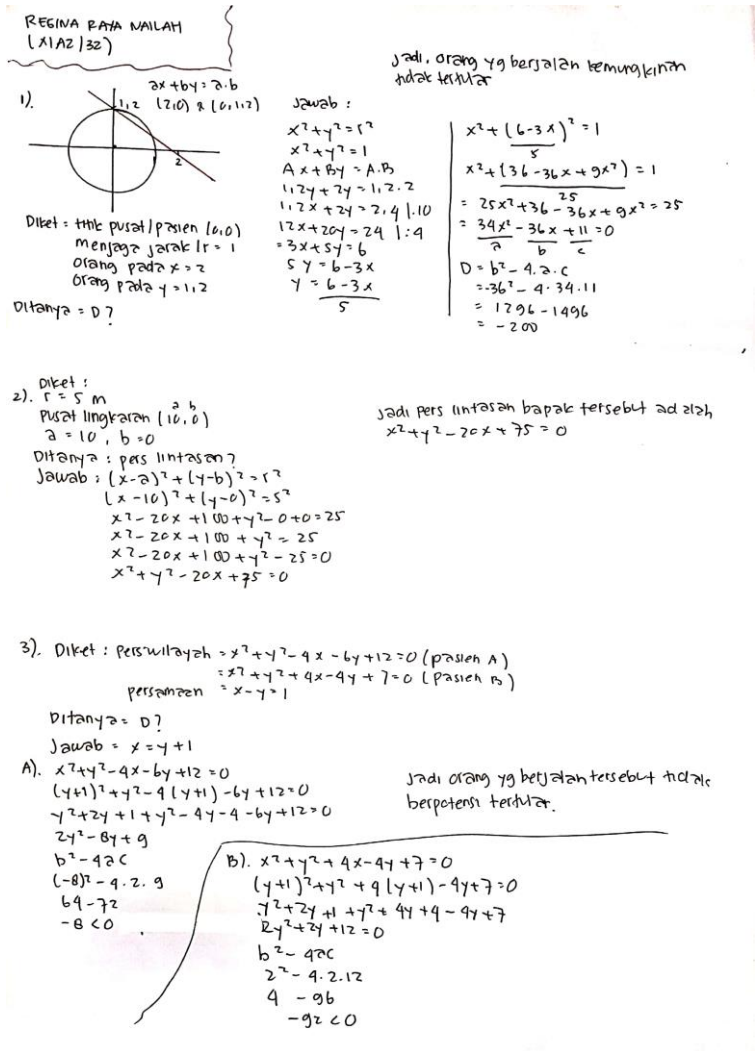 REGINA RAYA NAILAH
(XIA2/32)
Jadi, orang yg berjalan kemungkinan
tidak tertular
1).
ax + by = a.b
(2,0) & (0,1,2)
1,2
2
Diket = titik pusat/pasien (0,0)
menjaga jarak /r = 1
orang pada x = 2
orang pada y = 1,2
Ditanya = D?
Jawab :
x² + y² = r²
x² + y² = 1
Ax + By = A.B
1,2y + 2y = 1,2 . 2
1,2x + 2y = 2,4 |.10
12x + 20y = 24 |:4
= 3x + 5y = 6
5y = 6 - 3x
y = 6 - 3x
5
x² + (6 - 3x)² = 1
5
x² + (36 - 36x + 9x²) = 1
25
= 25x² + 36 - 36x + 9x² = 25
= 34x² - 36x + 11 = 0
a b c
D = b² - 4.a.c
= -36² - 4.34.11
= 1296 - 1496
= -200
2). Diket :
r = 5 m
a b
Pusat lingkaran (10,0)
a = 10, b = 0
Ditanya : pers lintasan?
Jawab : (x-a)² + (y-b)² = r²
(x-10)² + (y-0)² = 5²
x² - 20x + 100 + y² - 0 + 0 = 25
x² - 20x + 100 + y² = 25
x² - 20x + 100 + y² - 25 = 0
x² + y² - 20x + 75 = 0
Jadi pers lintasan bapak tersebut adalah
x² + y² - 20x + 75 = 0
3). Diket : Pers wilayah = x² + y² - 4x - 6y + 12 = 0 (pasien A)
= x² + y² + 4x - 4y + 7 = 0 (pasien B)
persamaan = x - y = 1
Ditanya = D?
Jawab = x = y + 1
A). x² + y² - 4x - 6y + 12 = 0
(y+1)² + y² - 4(y+1) - 6y + 12 = 0
y² + 2y + 1 + y² - 4y - 4 - 6y + 12 = 0
2y² - 8y + 9
b² - 4ac
(-8)² - 4.2.9
64 - 72
-8 < 0
Jadi orang yg berjalan tersebut tidak
berpotensi tertular.
B). x² + y² + 4x - 4y + 7 = 0
(y+1)² + y² + 4(y+1) - 4y + 7 = 0
y² + 2y + 1 + y² + 4y + 4 - 4y + 7
2y² + 2y + 12 = 0
b² - 4ac
2² - 4.2.12
4 - 96
-92 < 0